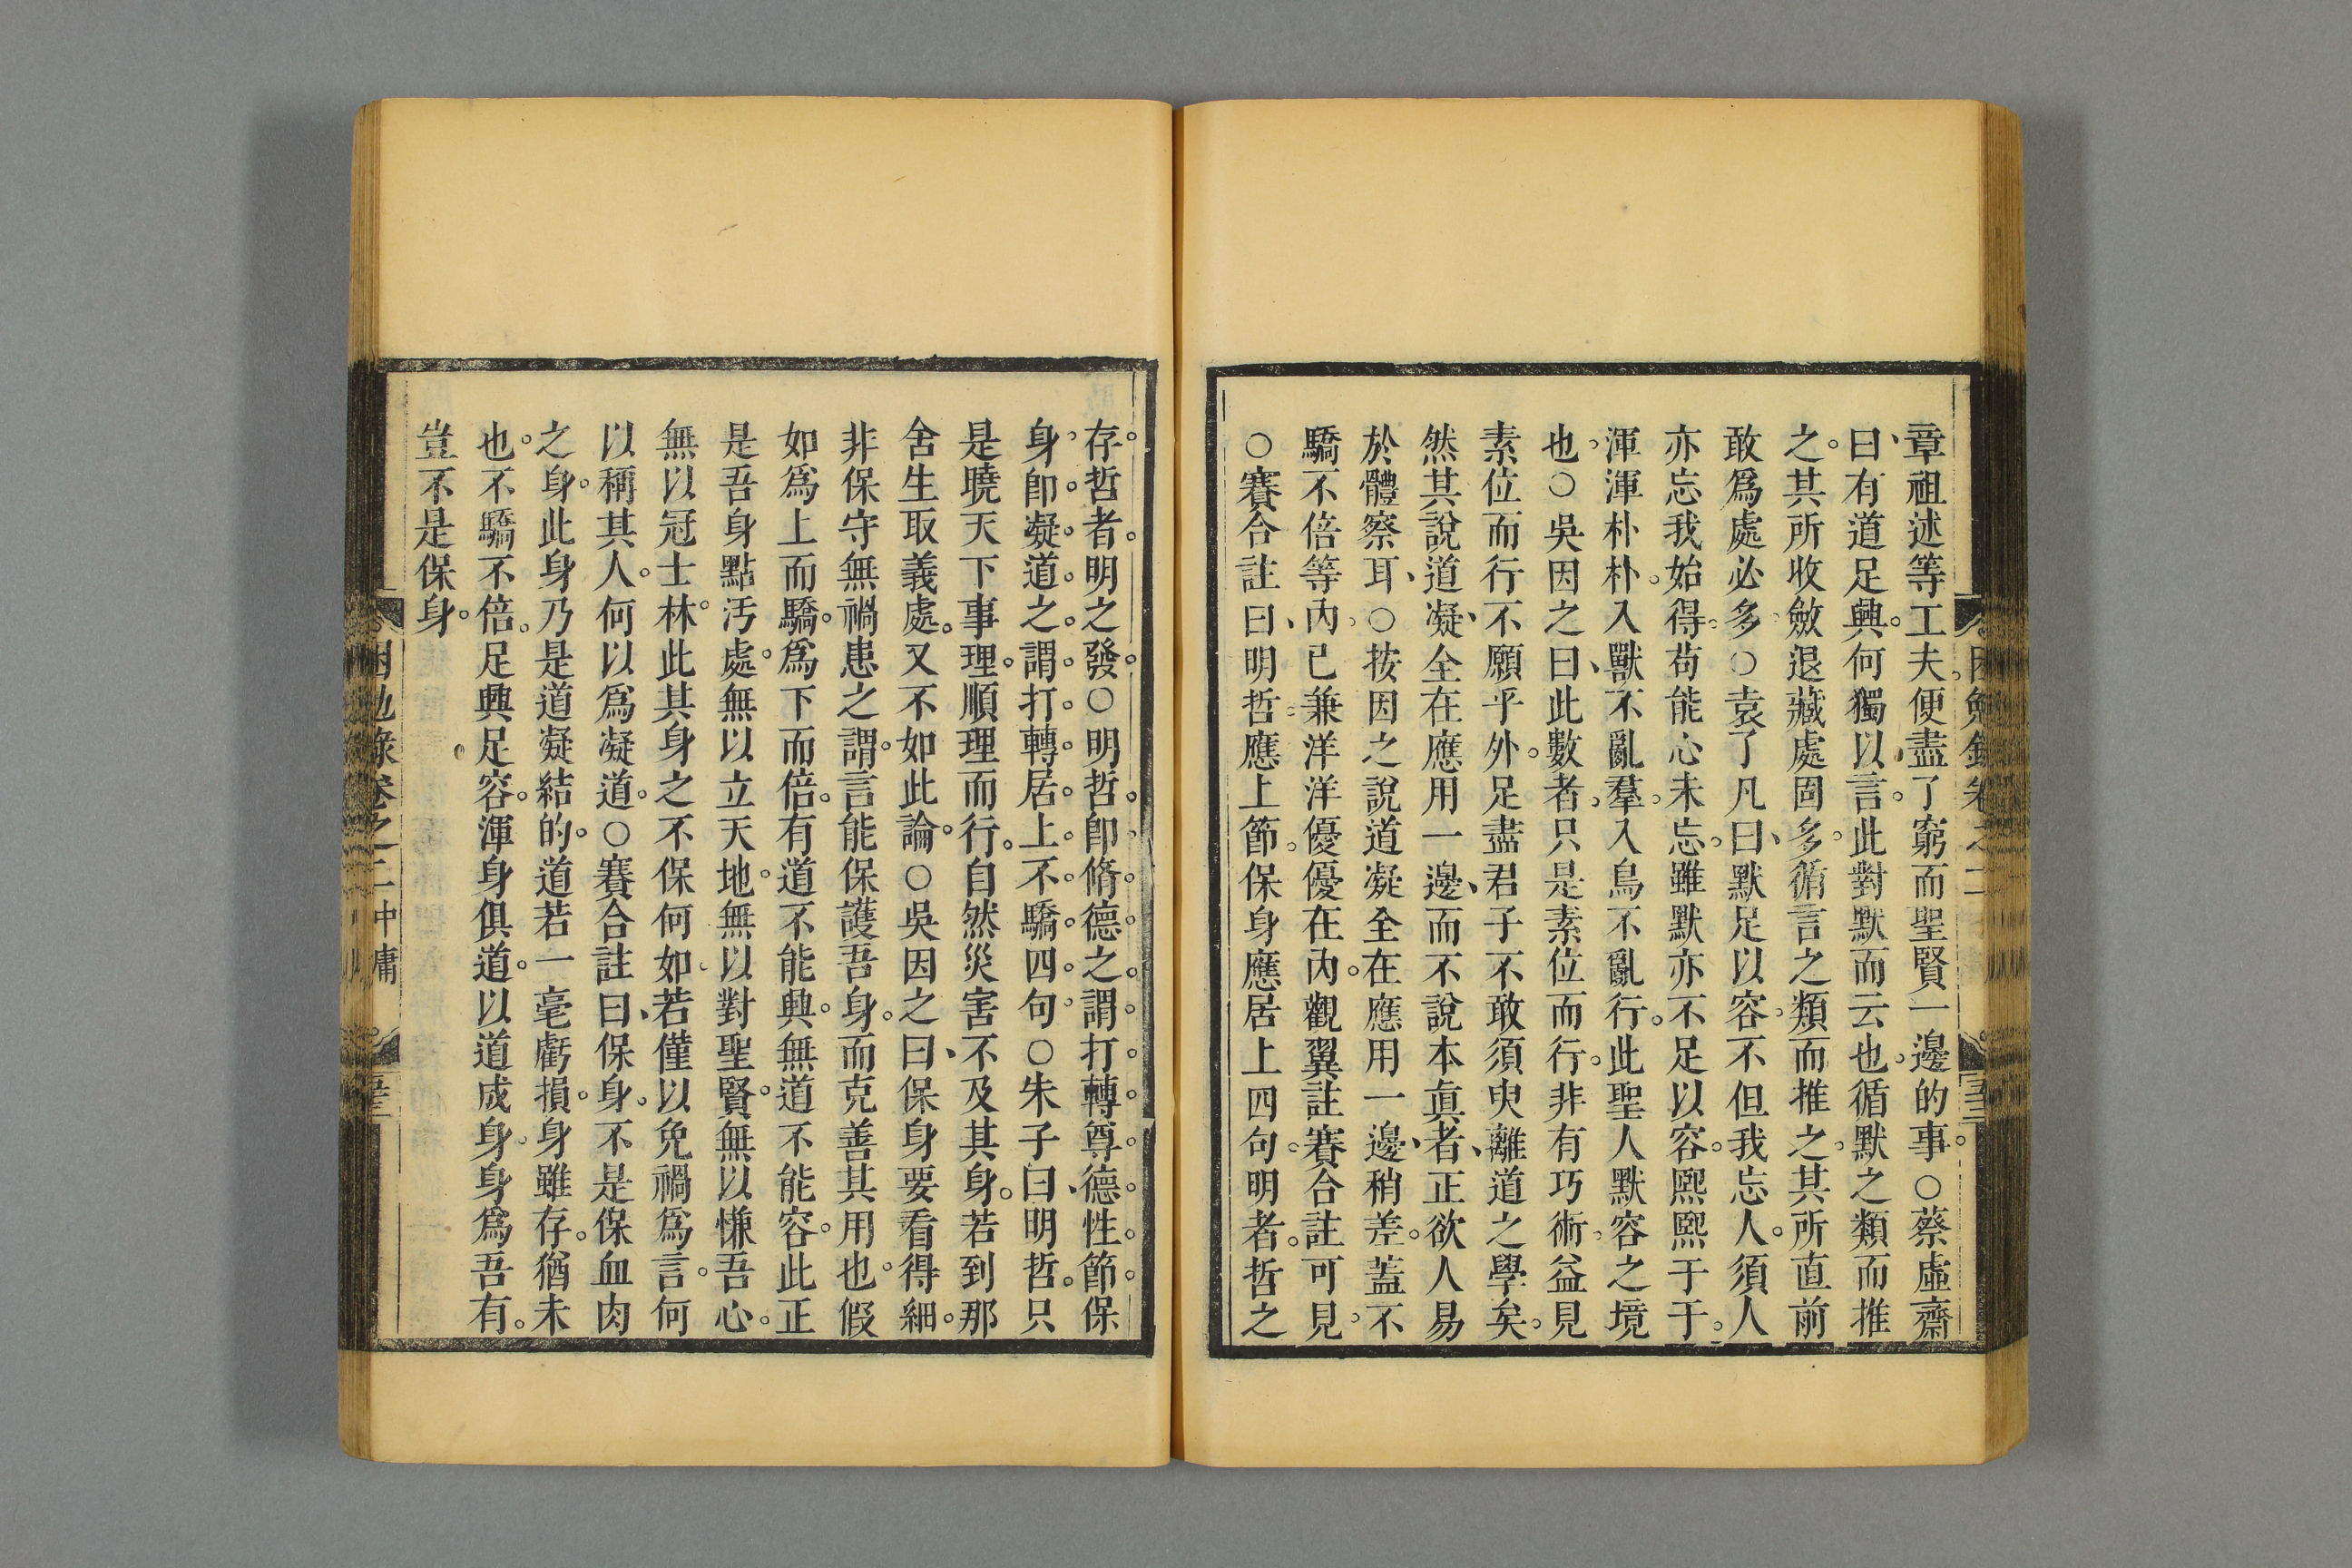 章祖述等工夫便盡了窮而聖賢一邊的事。○蔡虛齋
曰、有道足興。何獨以言。此對默而云也。循默之類而推
之。其所收斂退藏處固多。循言之類而推之。其所直前
敢爲處必多。○袁了凡曰、默足以容。不但我忘人。須人
亦忘我始得。苟能心未忘。雖默亦不足以容。熙熙于于。
渾渾朴朴。入獸不亂羣。入鳥不亂行。此聖人默容之境
也。○吳因之曰、此數者。只是素位而行。非有巧術。益見
素位而行不願乎外。足盡君子不敢須臾離道之學矣。
然其說道凝、全在應用一邊、而不說本眞者、正欲人易
於體察耳、○按因之說道凝全在應用一邊、稍差。蓋不
驕不倍等內。已兼洋洋優優在內。觀翼註賽合註可見。
○賽合註曰、明哲應上節。保身應居上四句。明者。哲之
存。哲者。明之發。○明哲。卽脩德之謂。打轉尊德性節。保
身。卽凝道之謂。打轉居上不驕四句。○朱子曰、明哲。只
是曉天下事理。順理而行。自然災害不及其身。若到那
舍生取義處。又不如此論。○吳因之曰、保身要看得細。
非保守無禍患之謂。言能保護吾身。而克善其用也。假
如爲上而驕。爲下而倍。有道不能興。無道不能容。此正
是吾身點汚處。無以立天地。無以對聖賢。無以慊吾心。
無以冠士林。此其身之不保何如。若僅以免禍爲言。何
以稱其人。何以爲凝道。○賽合註曰、保身。不是保血肉
之身。此身乃是道凝結的。道若一毫虧損。身雖存。猶未
也。不驕不倍。足興足容。渾身俱道。以道成身。身爲吾有。
豈不是保身。
困勉錄卷之二 中庸